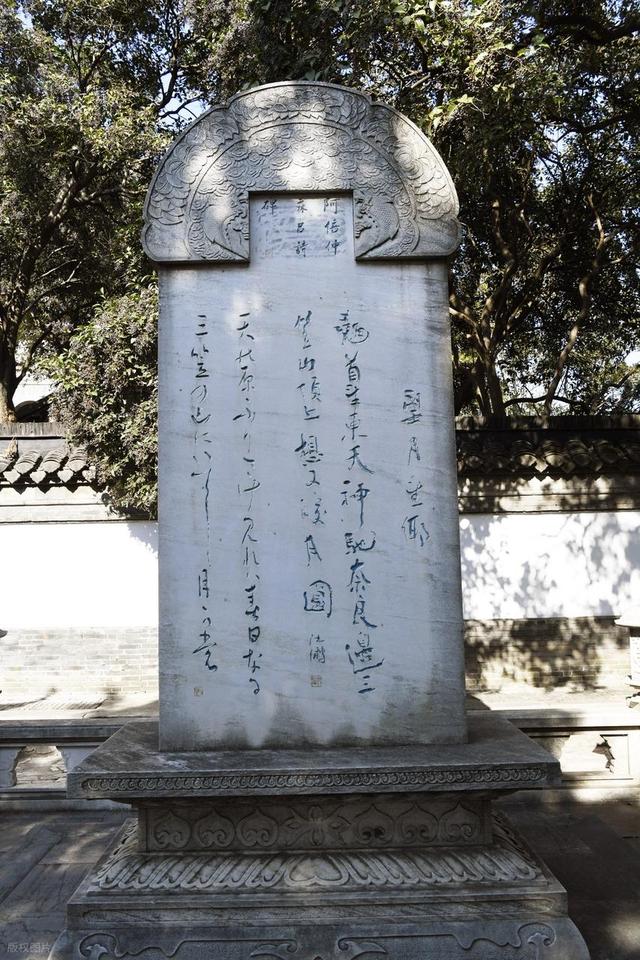 阿倍仲
麻呂詩
碑
望月望鄉
翹首望東天神馳奈良邊三
笠山頂上想又皎月圓
沈鵬
天の原ふりさけ見れば春日なる
三笠の山にいでし月かも
版权图片